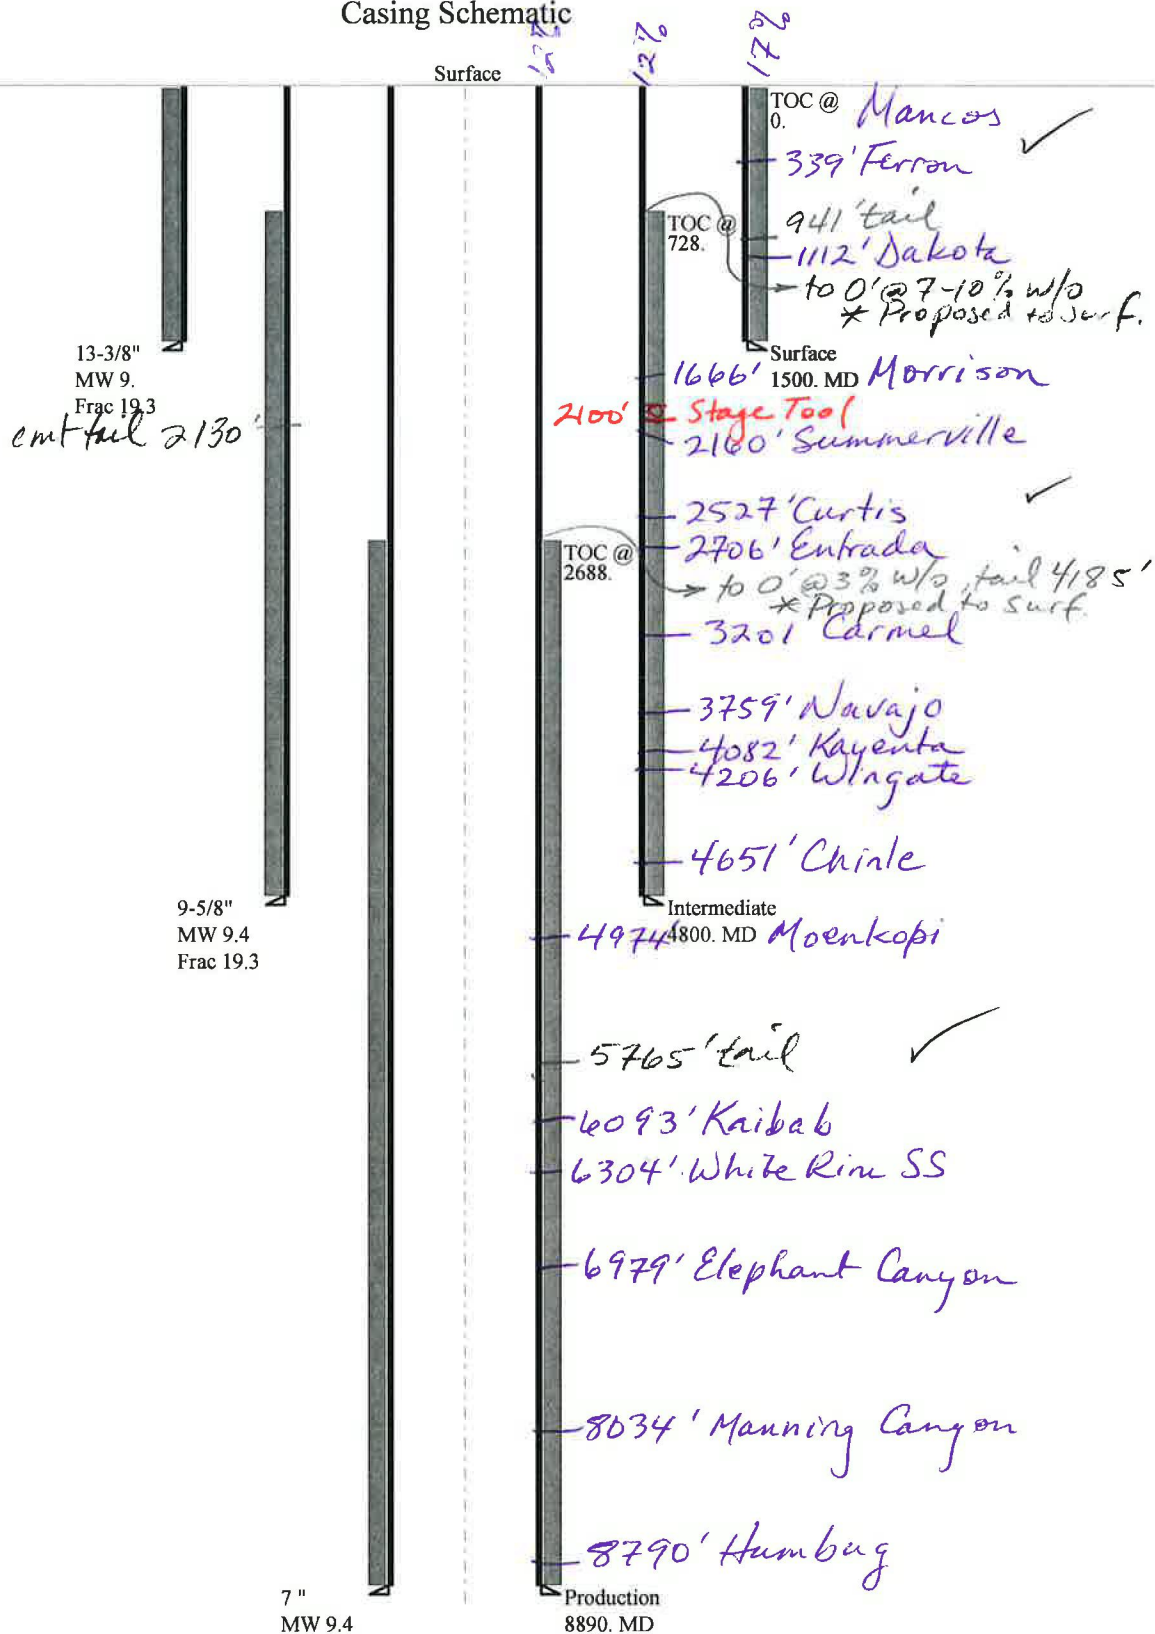 Casing Schematic
12%
12%
17%
Surface
TOC @
0.
Mancos
339' Ferron
941' tail
TOC @
728.
1112' Dakota
to 0' @ 7-10% w/o
* Proposed to surf.
13-3/8"
MW 9.
Frac 19.3
Surface
1500. MD
1666' Morrison
2100' Stage Tool
cmt tail 2130'
2160' Summerville
2527' Curtis
2706' Entrada
TOC @
2688.
to 0' @ 3% w/o, tail 4185'
* Proposed to surf.
3201 Carmel
3759' Navajo
4082' Kayenta
4206' Wingate
4651' Chinle
9-5/8"
MW 9.4
Frac 19.3
Intermediate
4800. MD
4974' Moenkopi
5765' tail
6093' Kaibab
6304' White Rim SS
6979' Elephant Canyon
8034' Manning Canyon
8790' Humbug
7 "
MW 9.4
Production
8890. MD